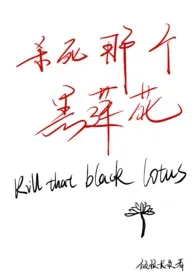 杀死那个
黑莲花
Kill that black lotus